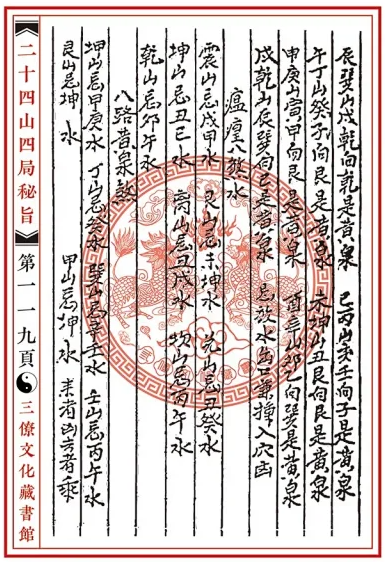 辰巽山戌乾向乾是黃泉　巳丙山亥壬向子是黃泉
午丁山癸子向艮是黃泉　未坤山丑艮向艮是黃泉
申庚山寅甲向艮是黃泉　酉辛山卯乙向巽是黃泉
戌乾山辰巽向是黃泉　忌放水出口兼撞入穴凶
瘟八煞水
震山忌戌甲水　艮山忌未坤水　兑山忌丑癸水
坤山忌丑巳水　离山忌丑戌水　坎山忌丙午水
乾山忌卯午水
八路黃泉煞
坤山忌甲庚水　丁山忌癸水　巽山忌辛壬水　壬山忌丙午水
艮山忌坤　水　甲山忌坤水　來者凶去者乘
二十四山四局秘旨　第一一九頁　三僚文化藏書館